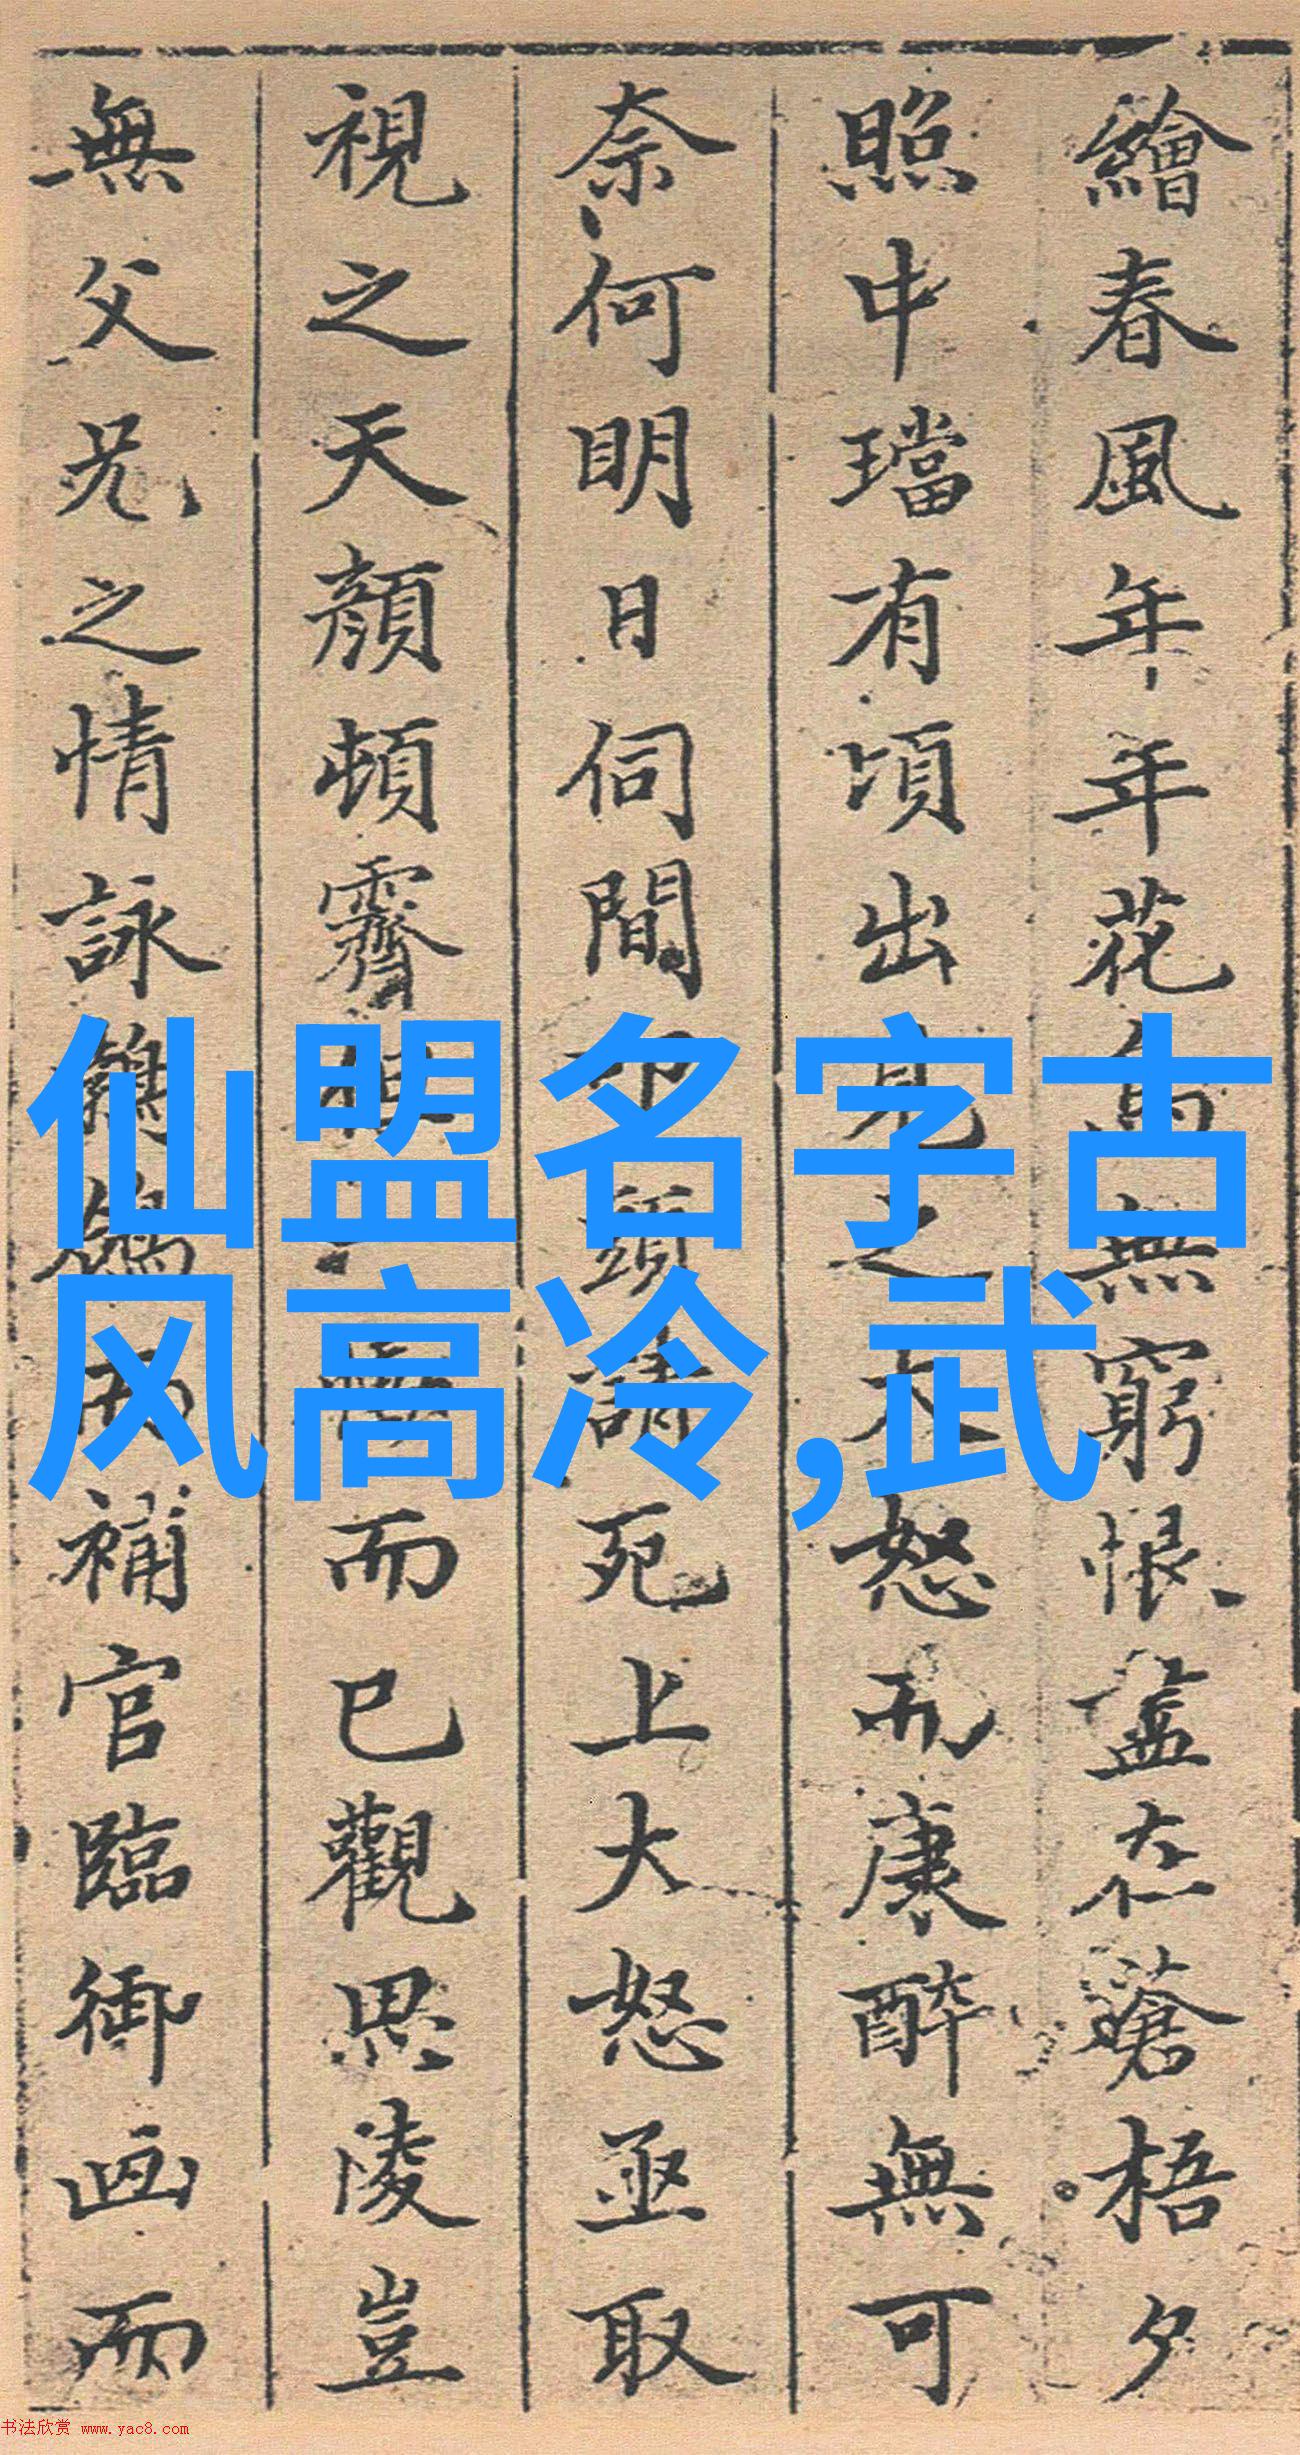 繪春風年年花鳥無窮恨盡在蒼梧夕
照中璫有頃出見之大怒而康醉無可
奈何明日伺間叩頭請死上大怒亟取
視之天顏頓霽但
而已觀思陵豈
無父兄之情詠鶺鴒
補官臨御画而
仙盟名字古
风高冷,武
书法欣赏 www.yac8.com